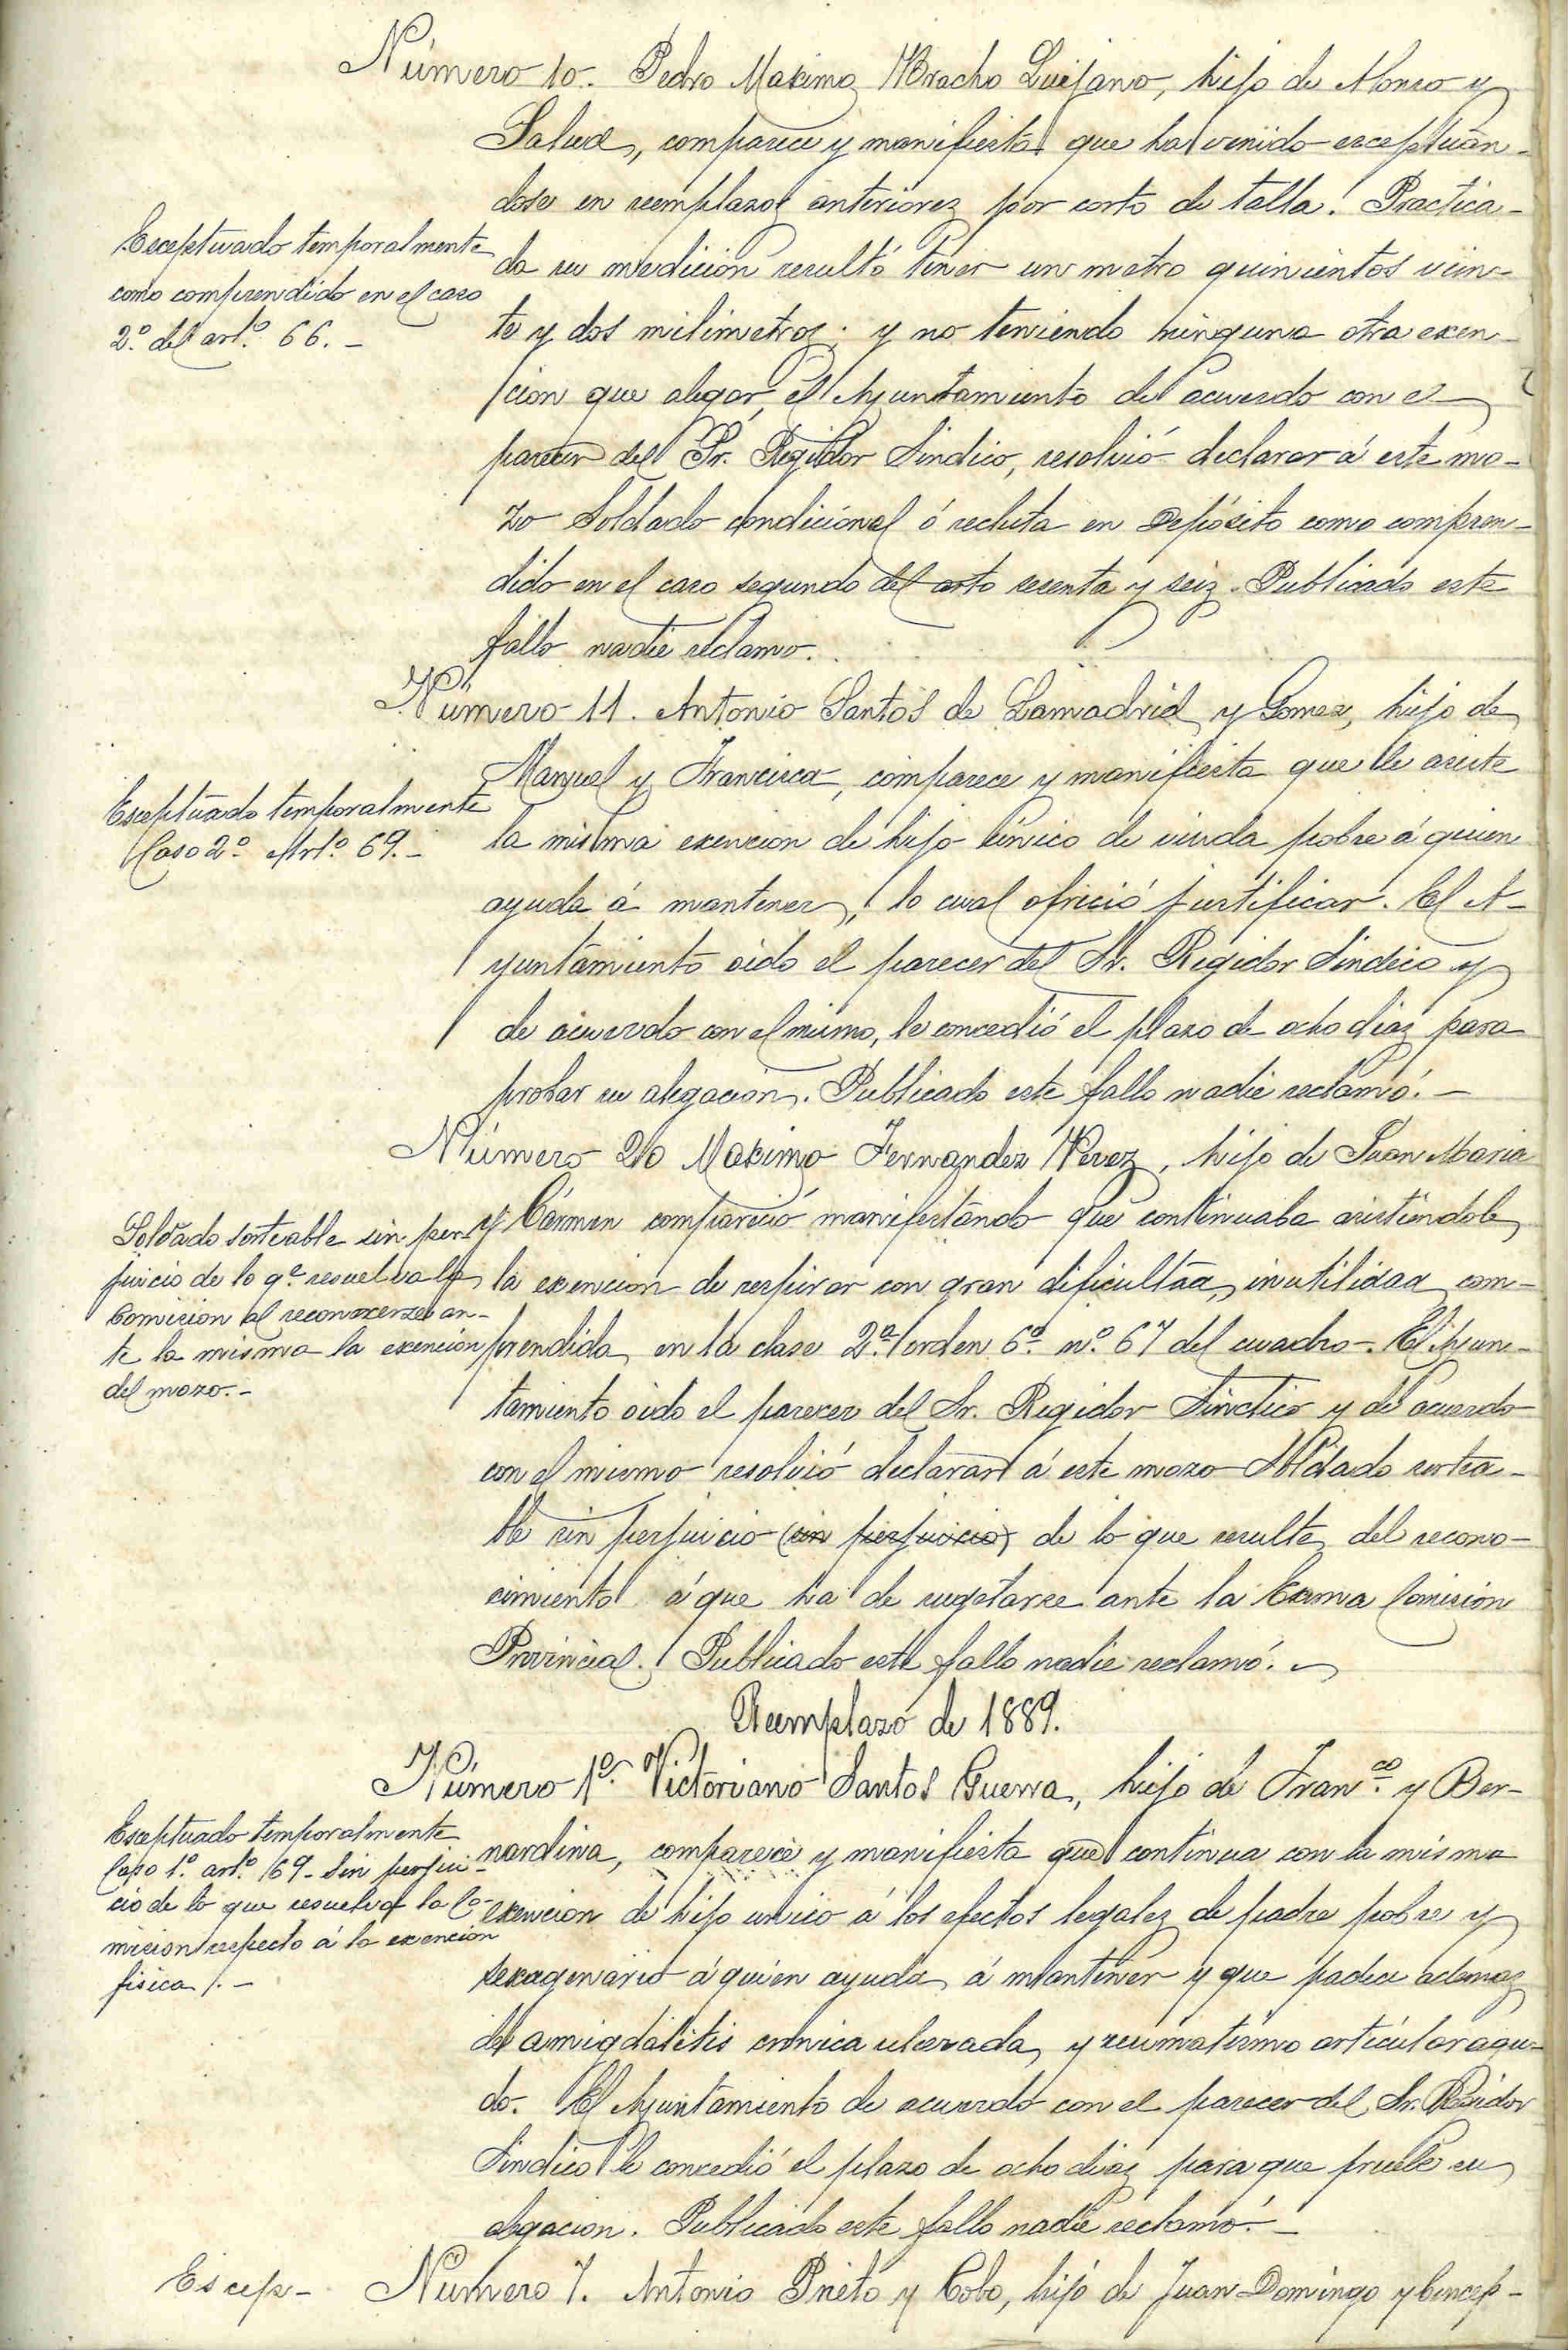 Número 10. Pedro Maximo Bracho Quijano, hijo de Alonso y
Salud, comparece y manifiesta que ha venido esceptuan-
dose en reemplazos anteriores por corto de talla. Practica-
Esceptuado temporalmente
como comprendido en el caso
2º. del artº. 66. -
da su medicion resultó tener un metro quinientos vein-
te y dos milimetros; y no teniendo ninguna otra exen-
cion que alegar, el Ayuntamiento de acuerdo con el
parecer del Sr. Regidor Sindico, resolvió declarar á este mo-
zo Soldado condicional ó recluta en Depósito como compren-
dido en el caso segundo del arto sesenta y seis. Publicado este
fallo nadie reclamo.
Número 11. Antonio Santos de Lamadrid y Gomez, hijo de
Manuel y Francisca, comparece y manifiesta que le asiste
Esceptuado temporalmente
Caso 2º. Artº. 69. -
la misma exencion de hijo único de viuda pobre á quien
ayuda á mantener, lo cual ofreció justificar. El A-
yuntamiento oido el parecer del Sr. Regidor Sindico y
de acuerdo con el mismo, le concedió el plazo de ocho dias para
probar su alegacion. Publicado este fallo nadie reclamó. -
Número 20 Maximo Fernandez Perez, hijo de Juan Maria
y Cármen compareció manifestando que continuaba asistiendole
Soldado sorteable sin per-
juicio de lo qe. resuelva la
Comision al reconocerse an-
te la misma la exencion
del mozo. -
la exencion de respirar con gran dificultad, inutilidad com-
prendida en la clase 2ª. orden 6º. nº. 67 del cuadro. El Ayun-
tamiento oido el parecer del Sr. Regidor Sindico y de acuerdo
con el mismo resolvió declarar á este mozo Soldado sortea-
ble sin perjuicio (sin perjuicio) de lo que resulte del recono-
cimiento á que ha de sugetarse ante la Exma Comision
Provincial. Publicado este fallo nadie reclamó.
Reemplazo de 1889.
Número 1º. Victoriano Santos Guerra, hijo de Franco. y Ber-
Esceptuado temporalmente
Caso 1º. artº. 69. Sin perjui-
cio de lo que resuelva la Co-
mision respecto á la exencion
fisica. -
nardina, comparece y manifiesta que continua con la misma
exencion de hijo unico á los efectos legales de padre pobre y
sexagenario á quien ayuda á mantener y que padece ademas
de amigdalitis cronica ulcerada y reumatismo articular agu-
do. El Ayuntamiento de acuerdo con el parecer del Sr. Regidor
Sindico le concedió el plazo de ocho dias para que pruebe su
alegacion. Publicado este fallo nadie reclamó. -
Escep- Número 7. Antonio Prieto y Cobo, hijo de Juan Domingo y Concep-